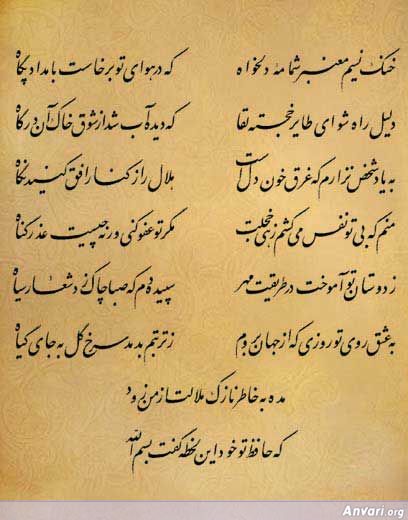 خنک نسیم معنبر شمامهٔ دلخواه که در هوای تو برخاست بامداد پگاه
دلیل راه شو ای طایر خجسته لقا که دیده آب شد از شوق خاک آن درگاه
به یاد شخص نزارم که غرق خون دل است هلال را ز کنار افق کنید نگاه
منم که بی تو نفس می کشم زهی خجلت مگر تو عفو کنی ور نه چیست عذر گناه
ز دوستان تو آموخت در طریقت مهر سپیده دم که صبا چاک زد شعار سیاه
به عشق روی تو روزی که از جهان بروم ز تربتم بدمد سرخ گل به جای گیاه
مده به خاطر نازک ملالت از من زود
که حافظ تو خود این لحظه گفت بسم الله
Anvari.org